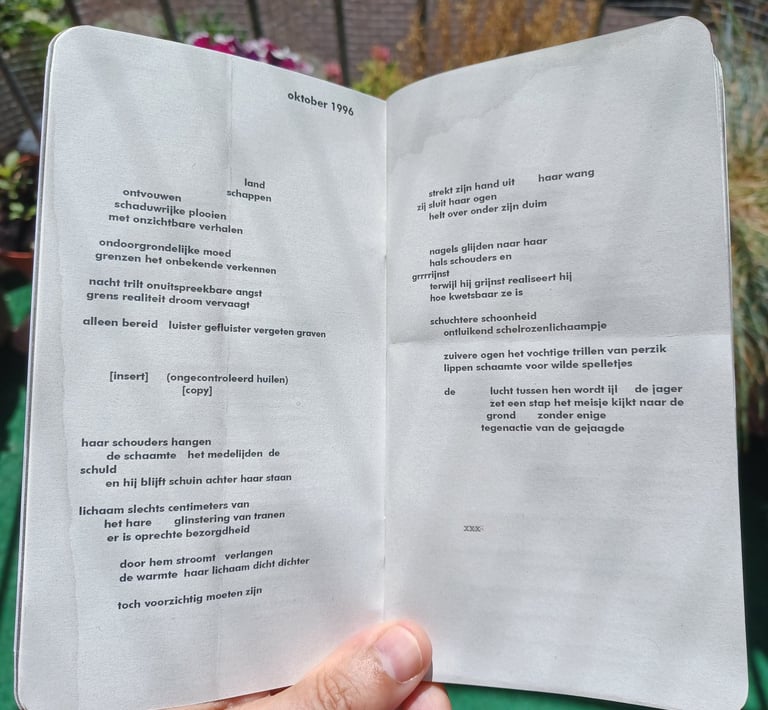 oktober 1996
land
ontvouwen schappen
schaduwrijke plooien
met onzichtbare verhalen
ondoorgrondelijke moed
grenzen het onbekende verkennen
nacht trilt onuitspreekbare angst
grens realiteit droom vervaagt
alleen bereid luister gefluister vergeten graven
[insert] (ongecontroleerd huilen)
[copy]
haar schouders hangen
de schaamte het medelijden de
schuld
en hij blijft schuin achter haar staan
lichaam slechts centimeters van
het hare glinstering van tranen
er is oprechte bezorgdheid
door hem stroomt verlangen
de warmte haar lichaam dicht dichter
toch voorzichtig moeten zijn
strekt zijn hand uit haar wang
zij sluit haar ogen
helt over onder zijn duim
nagels glijden naar haar
hals schouders en
grrrrijnst
terwijl hij grijnst realiseert hij
hoe kwetsbaar ze is
schuchtere schoonheid
ontluikend schelrozenlichaampje
zuivere ogen het vochtige trillen van perzik
lippen schaamte voor wilde spelletjes
de lucht tussen hen wordt ijl de jager
zet een stap het meisje kijkt naar de
grond zonder enige
tegenactie van de gejaagde
xxx